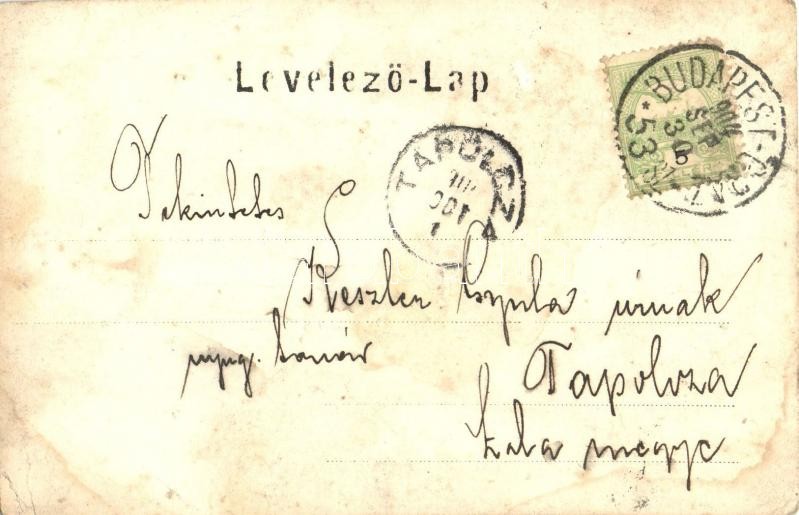 Levelező-Lap
BUDAPEST
53
TAPOLCZA
OCT
1
Tekintetes
Keszler Gyula úrnak
nyug. tanár
Tapolcza
Zala megye